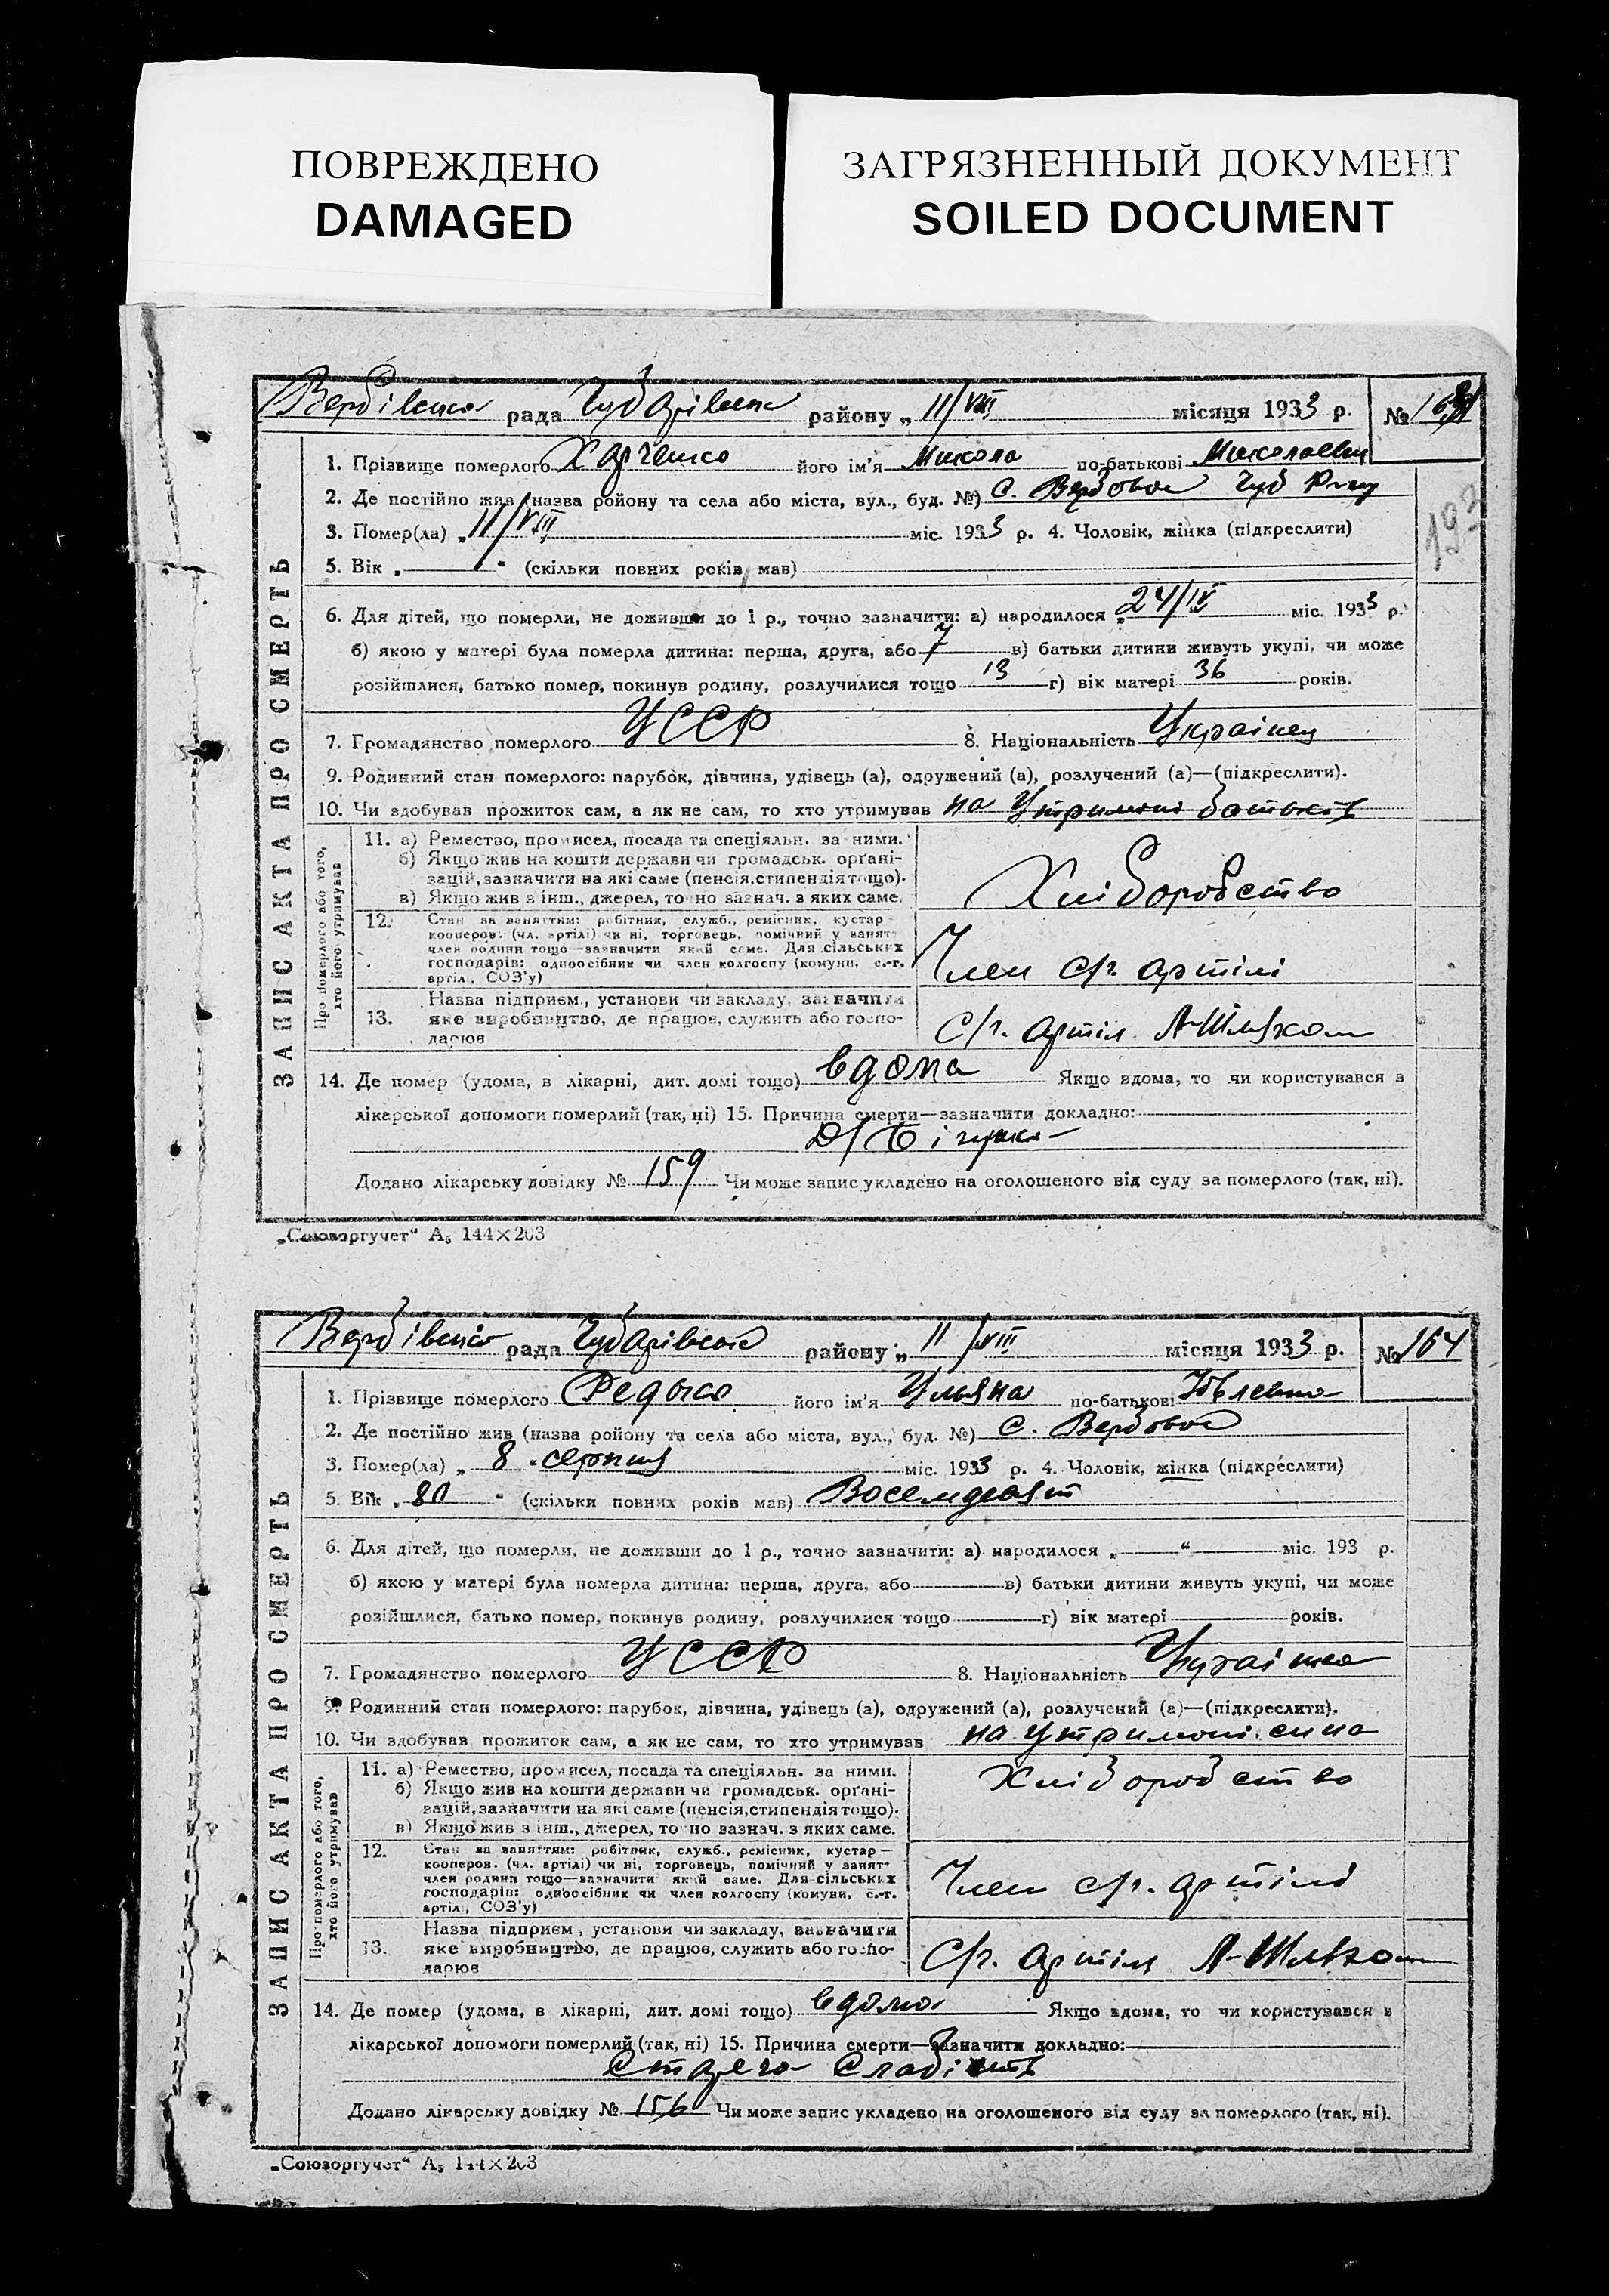 ПОВРЕЖДЕНО
DAMAGED
ЗАГРЯЗНЕННЫЙ ДОКУМЕНТ
SOILED DOCUMENT
ЗАПИС АКТА ПРО СМЕРТЬ
Вербівська рада Чубарівськ району „ 11/VIII місяця 1933 р. №
1. Прізвище померлого Харченко його ім'я Микола по-батькові Миколаевич
2. Де постійно жив (назва ройону та села або міста, вул., буд. №) С. Вербовое Чуб
3. Помер(ла) „ 11/VIII міс. 1933 р. 4. Чоловік, жінка (підкреслити)
5. Вік „ “ (скільки повних років мав)
6. Для дітей, що померли, не доживши до 1 р., точно зазначити: а) народилося „ 24/IV міс. 1933 р.
б) якою у матері була померла дитина: перша, друга, або 7 в) батьки дитини живуть укупі, чи може
розійшлися, батько помер, покинув родину, розлучилися тощо 13 г) вік матері 36 років.
7. Громадянство померлого УССР 8. Національність Українец
9. Родинний стан померлого: парубок, дівчина, удівець (а), одружений (а), розлучений (а)—(підкреслити).
10. Чи здобував прожиток сам, а як не сам, то хто утримував на утримані батьків
Про померлого або того, хто його утримував
11. а) Ремество, промисел, посада та спеціяльн. за ними.
б) Якщо жив на кошти держави чи громадськ. орґані-
зацій, зазначити на які саме (пенсія, стипендія тощо).
в) Якщо жив з інш., джерел, точно зазнач. з яких саме.
Хліборобство
12. Стан за заняттям: робітник, служб., ремісник, кустар—
кооперов. (чл. артілі) чи ні, торговець, помічний у занятт
член родини тощо—зазначити який саме. Для сільських
господарів: одноосібник чи член колгоспу (комуни, с.-г.
артіл., СОЗ'у)
Член с/г. артілі
13. Назва підприєм., установи чи закладу, зазначити
яке виробництво, де працює, служить або госпо-
дарює
С/г. артіл
14. Де помер (удома, в лікарні, дит. домі тощо) вдома Якщо вдома, то чи користувався з
лікарської допомоги померлий (так, ні) 15. Причина смерти—зазначити докладно:
Додано лікарську довідку № 159 Чи може запис укладено на оголошеного від суду за померлого (так, ні).
„Союзоргучет“ А5 144×203
ЗАПИС АКТА ПРО СМЕРТЬ
Вербівська рада Чубарівська району „ 11/VIII місяця 1933 р. № 164
1. Прізвище померлого Редько його ім'я Ульяна по-батькові
2. Де постійно жив (назва ройону та села або міста, вул., буд. №) С. Вербовое
3. Помер(ла) „ 8 “ серпня міс. 1933 р. 4. Чоловік, жінка (підкреслити)
5. Вік „ 80 “ (скільки повних років мав) Восемдесят
6. Для дітей, що померли, не доживши до 1 р., точно зазначити: а) народилося „ “ міс. 193 р.
б) якою у матері була померла дитина: перша, друга, або в) батьки дитини живуть укупі, чи може
розійшлися, батько помер, покинув родину, розлучилися тощо г) вік матері років.
7. Громадянство померлого УССР 8. Національність Українка
9. Родинний стан померлого: парубок, дівчина, удівець (а), одружений (а), розлучений (а)—(підкреслити).
10. Чи здобував прожиток сам, а як не сам, то хто утримував на утримані сина
Про померлого або того, хто його утримував
11. а) Ремество, промисел, посада та спеціяльн. за ними.
б) Якщо жив на кошти держави чи громадськ. орґані-
зацій, зазначити на які саме (пенсія, стипендія тощо).
в) Якщо жив з інш., джерел, точно зазнач. з яких саме.
Хліборобство
12. Стан за заняттям: робітник, служб., ремісник, кустар—
кооперов. (чл. артілі) чи ні, торговець, помічний у занятт
член родини тощо—зазначити який саме. Для сільських
господарів: одноосібник чи член колгоспу (комуни, с.-г.
артіл., СОЗ'у)
Член с/г. артілі
13. Назва підприєм., установи чи закладу, зазначити
яке виробництво, де працює, служить або госпо-
дарює
С/г. артіль
14. Де помер (удома, в лікарні, дит. домі тощо) вдома Якщо вдома, то чи користувався з
лікарської допомоги померлий (так, ні) 15. Причина смерти—зазначити докладно:
Стареча слабість
Додано лікарську довідку № 156 Чи може запис укладено на оголошеного від суду за померлого (так, ні).
„Союзоргучет“ А5 144×203